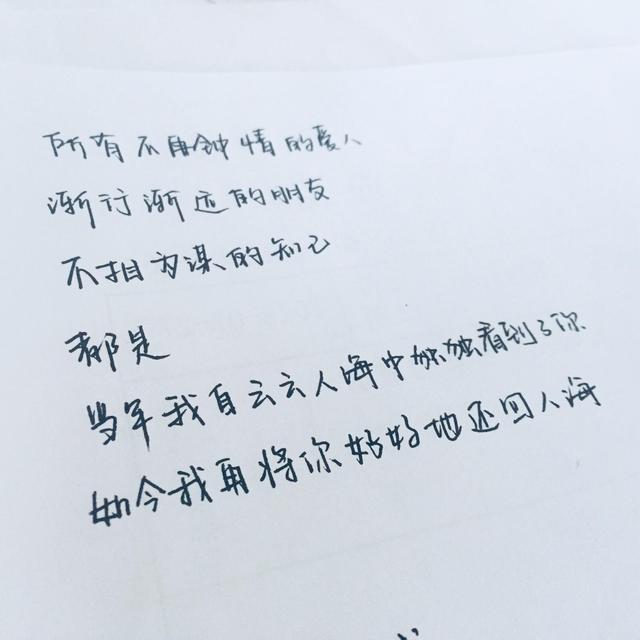 所有不再钟情的爱人
渐行渐远的朋友
不相为谋的知己
都是
当年我自云云人海中独独看到了你
如今我再将你好好地还回人海